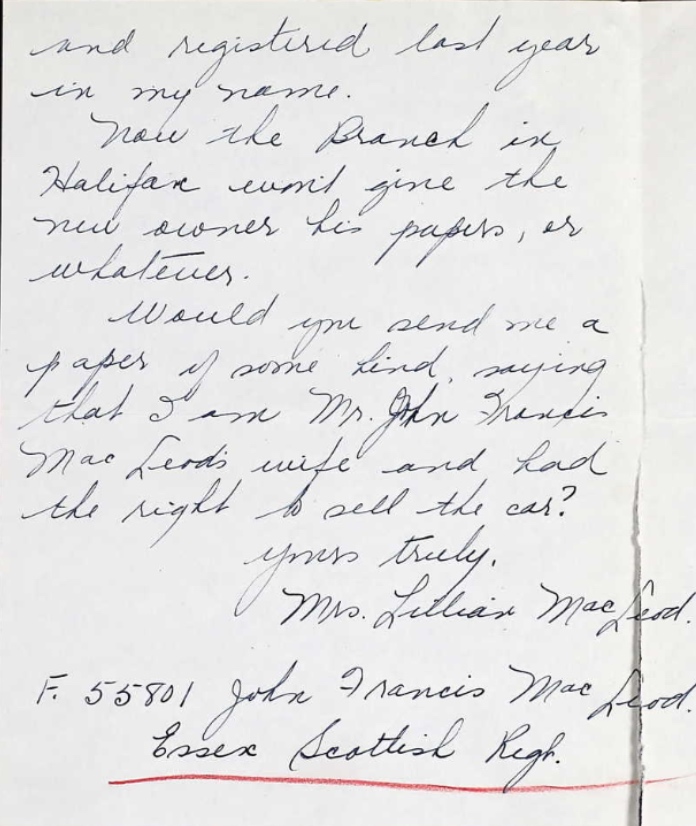 and registered last year
in my name.
Now the Branch in
Halifax won't give the
new owner his papers, or
whatever.
Would you send me a
paper of some kind, saying
that I am Mr. John Francis
Mac Leod's wife and had
the right to sell the car?
yours truly.
Mrs. Lillian Mac Leod.
F. 55801 John Francis Mac Leod.
Essex Scottish Regt.